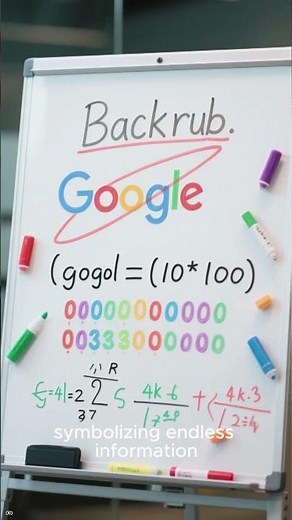 Backrub.
Google
(gogol=(10*100)
00000000000
00333000000
4k-6
4k-3
symbolizing endless
information